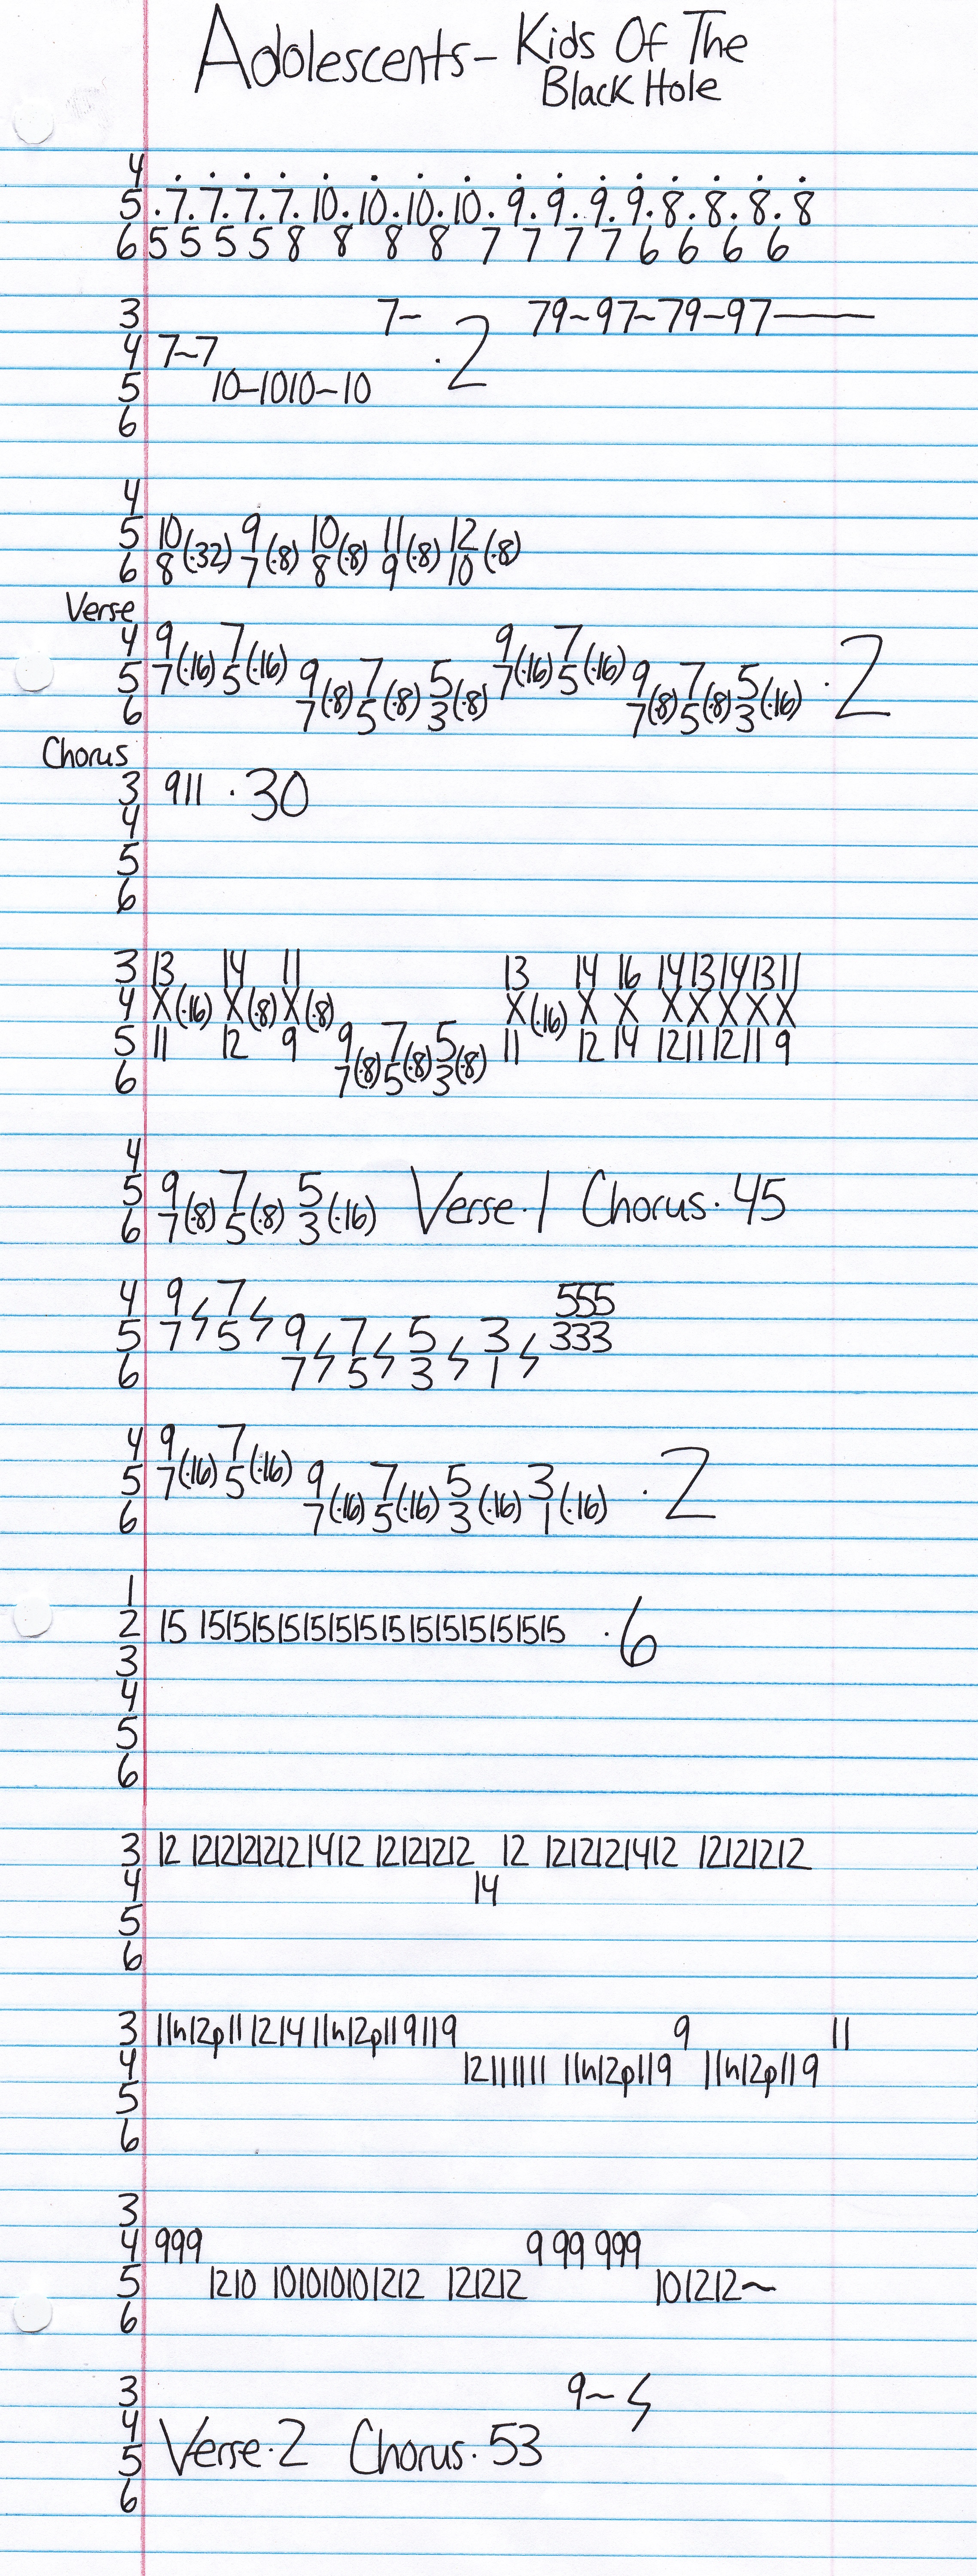 Adolescents - Kids Of The
Black Hole
4 . . . . . . . . . . . . . . . .
5 .7.7.7.7.10.10.10.10.9.9.9.9.8.8.8.8
6 5 5 5 5 8 8 8 8 7 7 7 7 6 6 6 6
3 7~ 79~97~79~97———
4 7~7 .2
5 10~1010~10
6
4
5 10 9 10 11 12
(.32) (.8) (.8) (.8) (.8)
6 8 7 8 9 10
Verse
4 9 7 9 7
(.16) (.16) (.16) (.16)
5 7 5 9 7 5 7 5 9 7 5 .2
(.8) (.8) (.8) (.8) (.8) (.16)
6 7 5 3 7 5 3
Chorus
3 911 .30
4
5
6
3 13 14 11 13 14 16 14 13 14 13 11
4 X(.16) X(.8) X(.8) X(.16) X X X X X X X
5 11 12 9 9 7 5 11 12 14 12 11 12 11 9
(.8) (.8) (.8)
6 7 5 3
4
5 9 7 5 Verse.1 Chorus.45
(.8) (.8) (.16)
6 7 5 3
4 9 7 555
5 7 5 9 7 5 3 333
6 7 5 3 1
4 9 7
(.16) (.16)
5 7 5 9 7 5 3 .2
(.16) (.16) (.16) (.16)
6 7 5 3 1
1
2 15 1515151515151515151515151515 .6
3
4
5
6
3 12 12121212121412 12121212 12 1212121412 12121212
4 14
5
6
3 11h12p11 1214 11h12p119119 9 11
4 12111111 11h12p119 11h12p119
5
6
3
4 999 9 99 999
5 1210 101010101212 121212 101212~
6
3 9~
4
5 Verse.2 Chorus.53
6